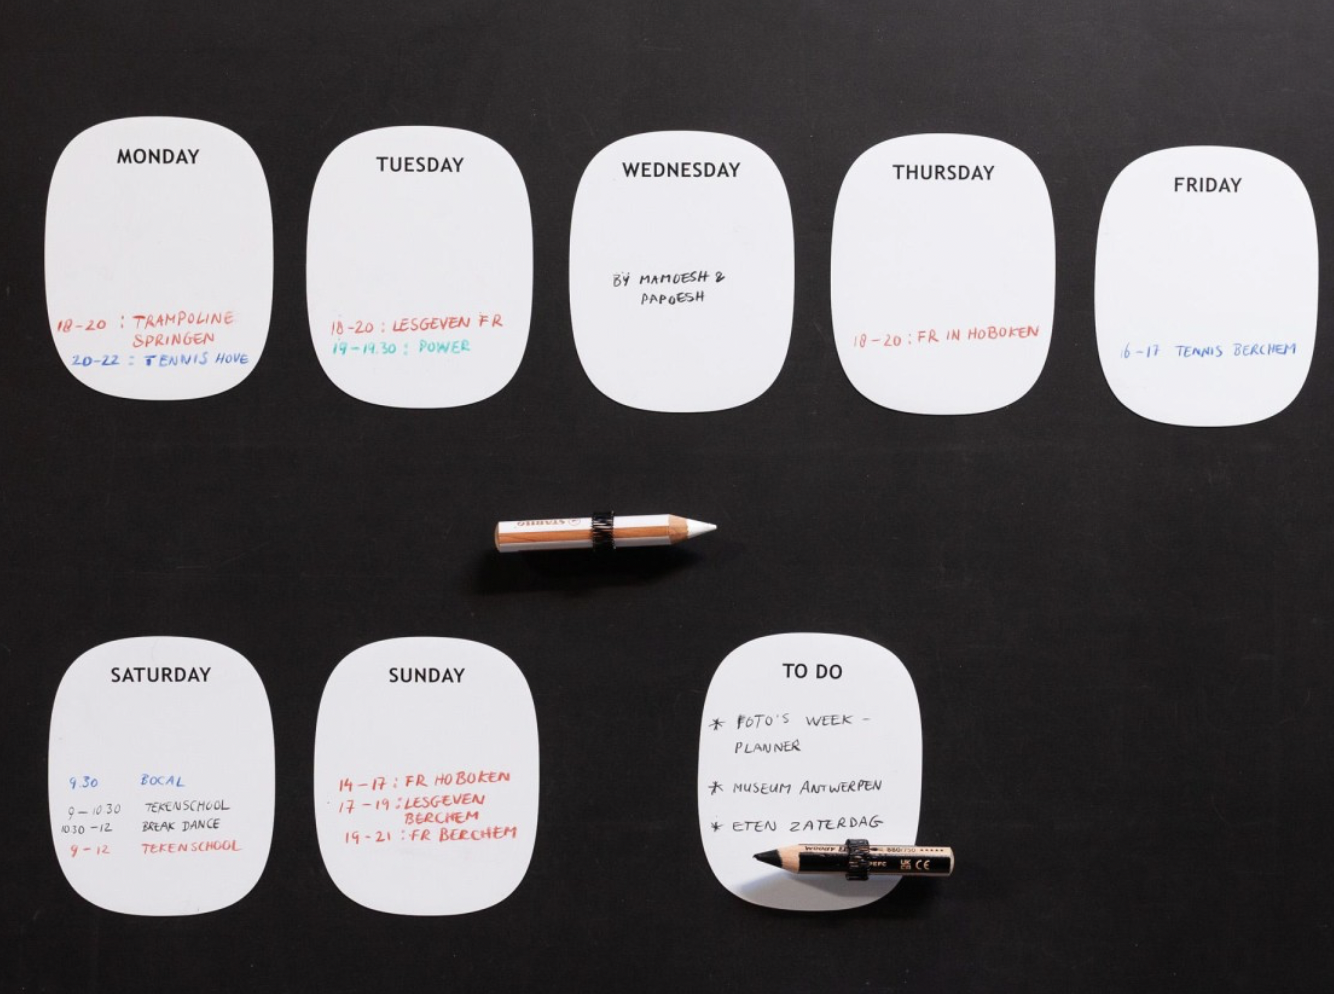 MONDAY
18-20 : TRAMPOLINE
SPRINGEN
20-22 : TENNIS HOVE
TUESDAY
18-20 : LESGEVEN FR
19-19.30 : POWER
WEDNESDAY
BY MAMOESH &
PAPOESH
THURSDAY
18-20 : FR IN HOBOKEN
FRIDAY
16-17 TENNIS BERCHEM
STABILO
SATURDAY
9.30 BOCAL
9-10.30 TEKENSCHOOL
10.30-12 BREAK DANCE
9-12 TEKENSCHOOL
SUNDAY
14-17 : FR HOBOKEN
17-19 : LESGEVEN
BERCHEM
19-21 : FR BERCHEM
TO DO
* FOTO'S WEEK-
PLANNER
* MUSEUM ANTWERPEN
* ETEN ZATERDAG
880/750
UK CA CE